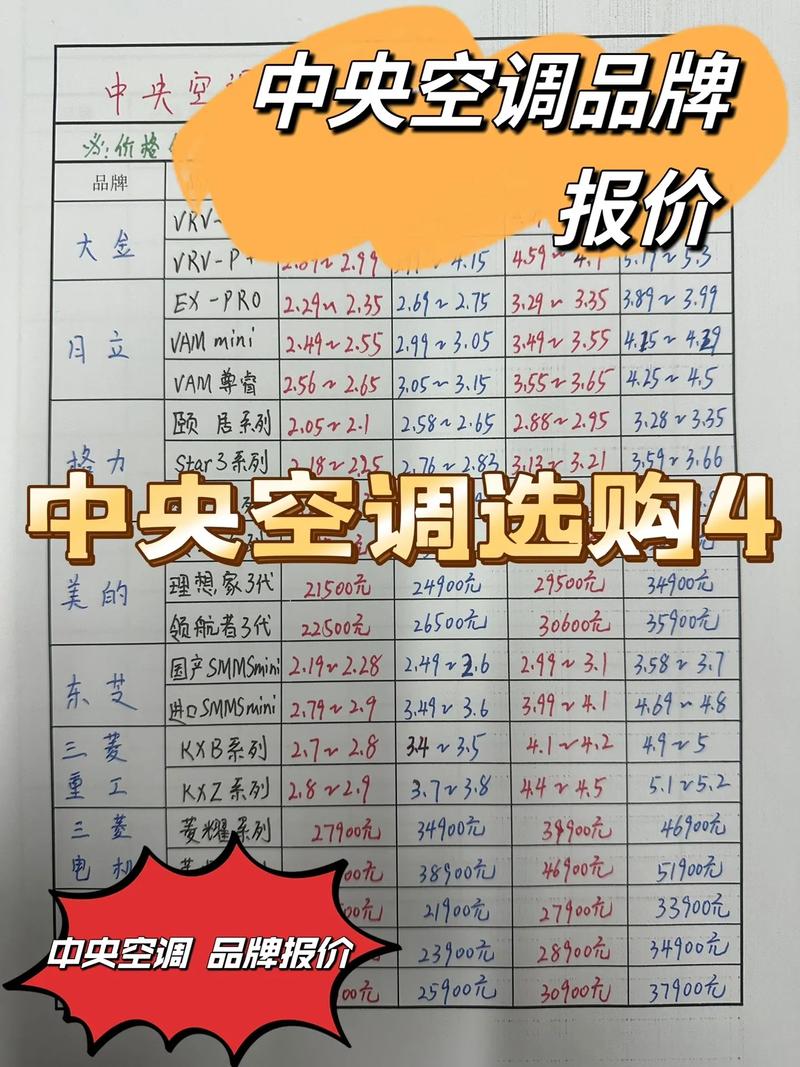 中央空调品牌
报价
中央空调
※:价格
品牌
大金 VRV-
VRV-P 2.99 4.15 4.59~4. 5.3
日立 EX-PRO 2.29~2.35 2.69~2.75 3.29~3.35 3.89~3.99
VAM mini 2.49~2.55 2.99~3.05 3.49~3.55 4.15~4.29
VAM尊睿 2.56~2.65 3.05~3.15 3.55~3.65 4.25~4.5
格力 颐居系列 2.05~2.1 2.58~2.65 2.88~2.95 3.28~3.35
Star3系列 2.18~2.25 2.76~2.83 3.13~3.21 3.59~3.66
中央空调选购4
美的 理想家3代 21500元 24900元 29500元 34900元
领航者3代 22500元 26500元 30600元 35900元
东芝 国产SMMSmini 2.19~2.28 2.49~2.6 2.99~3.1 3.58~3.7
进口SMMSmini 2.79~2.9 3.49~3.6 3.99~4.1 4.69~4.8
三菱重工 KXB系列 2.7~2.8 3.4~3.5 4.1~4.2 4.9~5
KXZ系列 2.8~2.9 3.7~3.8 4.4~4.5 5.1~5.2
三菱电机 菱耀系列 27900元 34900元 39900元 46900元
38900元 46900元 51900元
21900元 27900元 33900元
23900元 28900元 34900元
25900元 30900元 37900元
中央空调 品牌报价